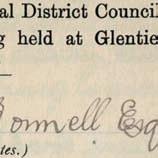 al District Council
g held at Glentie
onnell Esq
tes.)